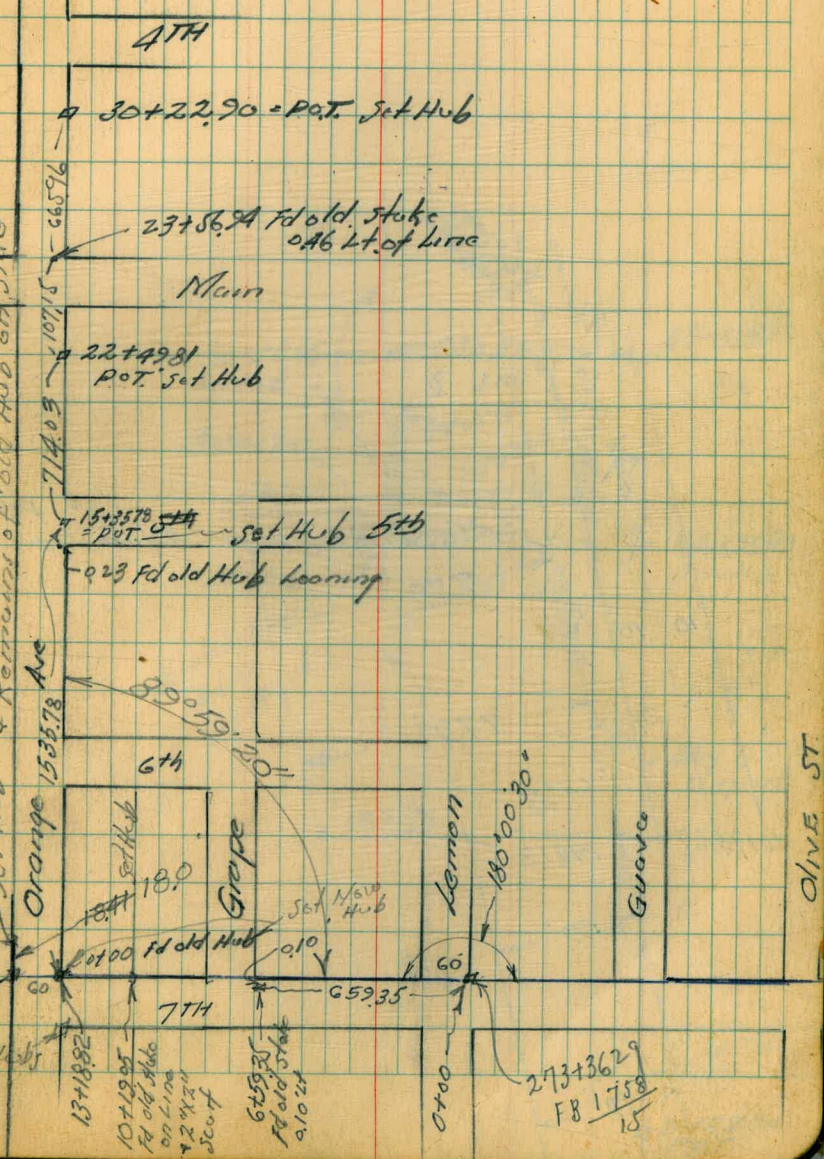 4TH
30+22.90 = P.O.T. Set Hub
665.96
23+56.94 Fd old Stake
0.46 Lt. of Line
107.15
Main
22+49.81
P.O.T. Set Hub
714.03
15+35.78 5th
= P.O.T.
Set Hub 5th
0.23 Fd old Hub Leaning
Remains of old Hub on
Orange Ave
1535.78
89°59'
6th
Set Hub
18.0
Grape
Set New
Hub
0.10
0+00 Fd old Hub
Lemon
180°00'30"
Guava
OLIVE ST
60
60
659.35
7TH
13+18.82
10+19.05
Fd old Stake
on Line
+ 2"x2"
6+59.35
Fd old Stake
0.10' Lt
0+00
273+36.29
FB 1758
15